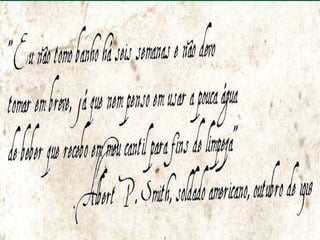 "Eu não tomo banho há seis semanas e não devo
tomar em breve, já que nem penso em usar a pouca água
de beber que recebo em meu cantil para fins de limpeza"
Albert P. Smith, soldado americano, outubro de 1918